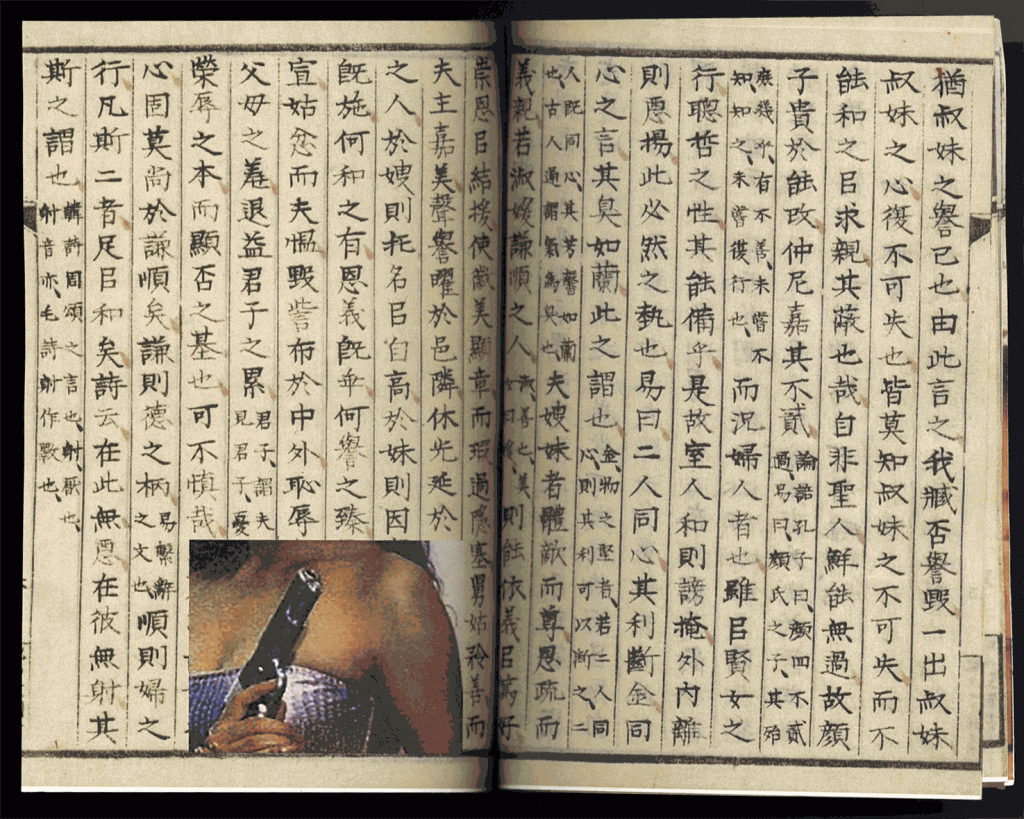 猶叔妹之譽己也由此言之我臧否譽毀一出叔妹
叔妹之心復不可失也皆莫知叔妹之不可失而不
能和之㠯求親其蔽也哉自非聖人鮮能無過故顏
子貴於能改仲尼嘉其不貳論語孔子曰顏回不貳過易曰顏氏之子其殆
庶幾乎有不善未嘗不知知之未嘗復行也而況婦人者也雖㠯賢女之
行聰哲之性其能備乎是故室人和則謗掩外內離
則惡揚此必然之埶也易曰二人同心其利斷金同
心之言其臭如蘭此之謂也金物之堅者若二人同心則其利可以斷之二
人既同心其芳馨如蘭也古人通謂氣為臭也夫嫂妹者體敵而尊恩疏而
義親若淑媛謙順之人淑善也美女曰媛則能依義㠯篤好
崇恩㠯結援使徽美顯章而瑕過隱塞舅姑矜善而
夫主嘉美聲譽曜於邑鄰休光延於
之人於嫂則托名㠯自高於妹則因
既施何和之有恩義既乖何譽之臻
宣姑忿而夫慍毀訾布於中外恥辱
父母之羞退益君子之累君子謂夫見君子憂
榮辱之本而顯否之基也可不慎哉
心固莫尚於謙順矣謙則德之柄易繫辭之文也順則婦之
行凡斯二者足㠯和矣詩云在此無惡在彼無射其
斯之謂也韓詩周頌之言也射厭也射音亦毛詩射作斁也